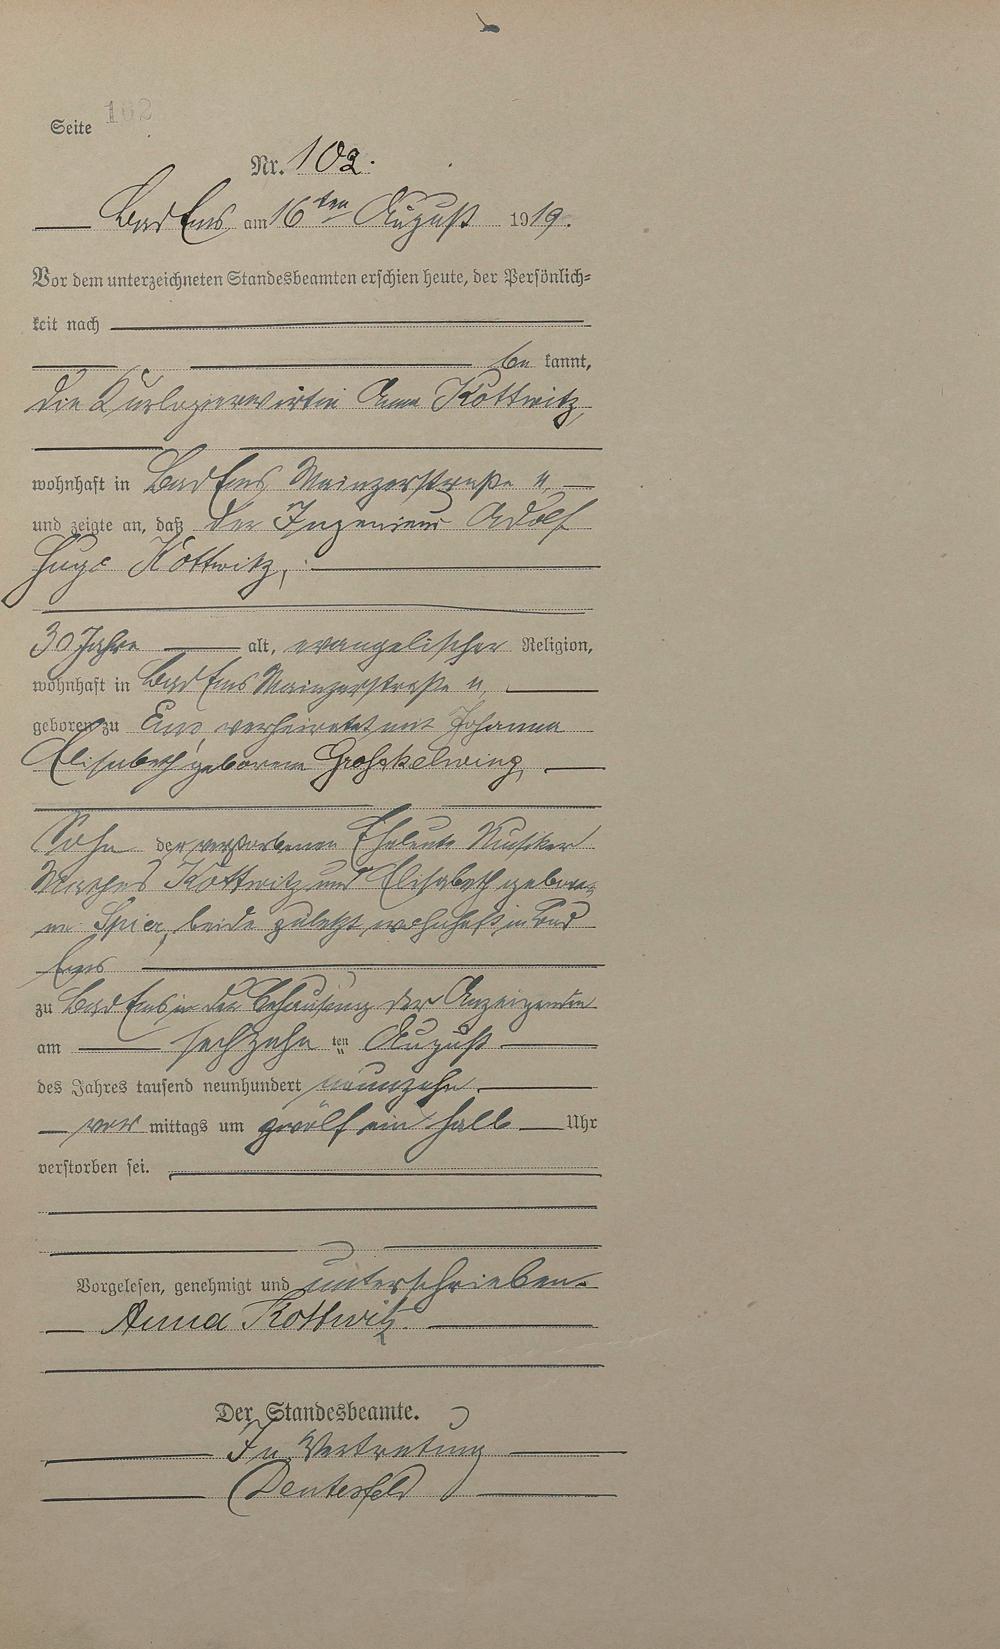 Seite 102
Nr. 102.
Bad Ems am 16ten August 1919.
Vor dem unterzeichneten Standesbeamten erschien heute, der Persönlich=
keit nach
be kannt,
die Kurlogierwirtin Anna Kottwitz,
wohnhaft in Bad Ems, Mainzerstraße
und zeigte an, daß der Ingenieur Adolf
Hugo Kottwitz,
30 Jahre alt, evangelischer Religion,
wohnhaft in Bad Ems Mainzerstraße
geboren zu Ems, verheiratet mit Johanna
Elisabeth geborenen Großkelwing,
Sohn der verstorbenen Eheleute Musiker
Kottwitz und Elisabeth gebore-
ne Spier, beide zuletzt wohnhaft in Bad
Ems
zu Bad Ems in der Behausung der Anzeigenden
am sechzehn ten August
des Jahres tausend neunhundert neunzehn
vor mittags um zwölf ein halb Uhr
verstorben sei.
Vorgelesen, genehmigt und unterschrieben.
Anna Kottwitz.
Der Standesbeamte.
In Vertretung